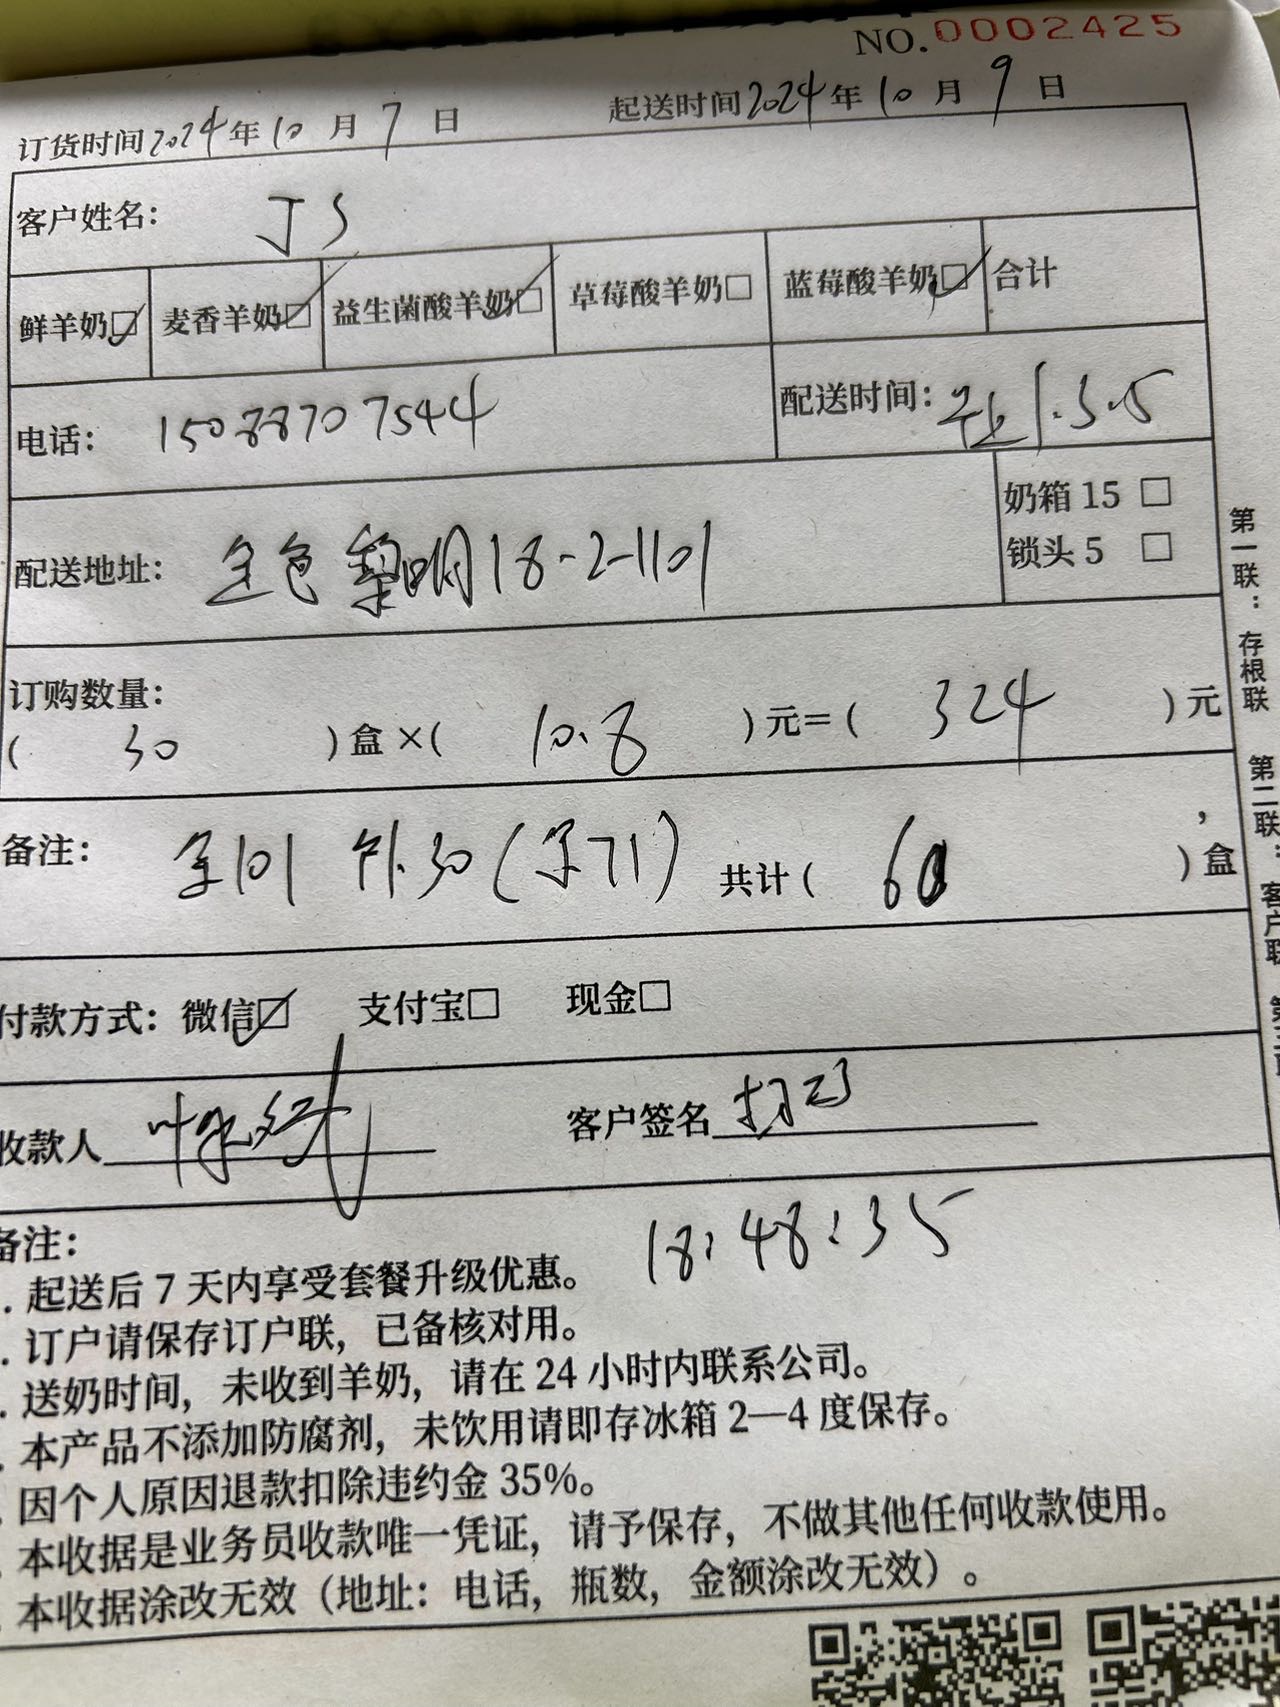 NO.0002425
订货时间2024年10月7日 起送时间2024年10月9日
客户姓名: JS
鲜羊奶☑ 麦香羊奶☑ 益生菌酸羊奶☑ 草莓酸羊奶□ 蓝莓酸羊奶☑ 合计
电话: 15088707544 配送时间: 1.3.5
奶箱 15 □
配送地址: 金色黎明18-2-1101 锁头 5 □
订购数量:
( 30 )盒×( 10.8 )元=( 324 )元
备注: 101 30( 71) 共计( 60 )盒
付款方式: 微信☑ 支付宝□ 现金□
收款人 客户签名
18:48:35
备注:
. 起送后 7 天内享受套餐升级优惠。
. 订户请保存订户联，已备核对用。
. 送奶时间，未收到羊奶，请在 24 小时内联系公司。
. 本产品不添加防腐剂，未饮用请即存冰箱 2—4 度保存。
因个人原因退款扣除违约金 35%。
本收据是业务员收款唯一凭证，请予保存，不做其他任何收款使用。
本收据涂改无效（地址：电话，瓶数，金额涂改无效）。
第一联：存根联 第二联：客户联